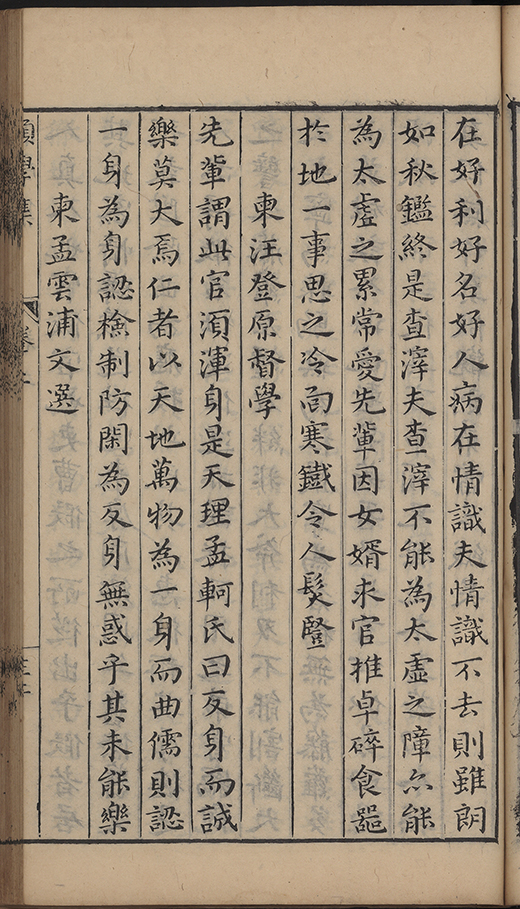 在好利好名好人病在情識夫情識不去則雖朗
如秋鑑終是查滓夫查滓不能為太虛之障亦能
為太虛之累常愛先輩因女婿求官推卓碎食噐
於地一事思之冷面寒鐵令人髮豎
柬汪登原督學
先輩謂此官須渾身是天理孟軻氏曰反身而誠
樂莫大焉仁者以天地萬物為一身而曲儒則認
一身為身認檢制防閑為反身無惑乎其未能樂
柬孟雲浦文選
學集